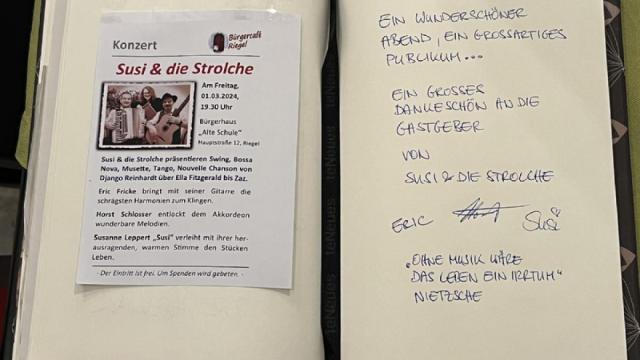 Konzert
Bürgercafé
Riegel
Susi & die Strolche
Am Freitag,
01.03.2024,
19.30 Uhr
Bürgerhaus
„Alte Schule"
Hauptstraße 12, Riegel
Susi & die Strolche präsentieren Swing, Bossa
Nova, Musette, Tango, Nouvelle Chanson von
Django Reinhardt über Ella Fitzgerald bis Zaz.
Eric Fricke bringt mit seiner Gitarre die
schrägsten Harmonien zum Klingen.
Horst Schlosser entlockt dem Akkordeon
wunderbare Melodien.
Susanne Leppert „Susi" verleiht mit ihrer her-
ausragenden, warmen Stimme den Stücken
Leben.
- Der Eintritt ist frei. Um Spenden wird gebeten. -
teNeues
teNeues
EIN WUNDERSCHÖNER
ABEND, EIN GROSSARTIGES
PUBLIKUM...
EIN GROSSES
DANKESCHÖN AN DIE
GASTGEBER
VON
SUSI & DIE STROLCHE
ERIC
Susi
„OHNE MUSIK WÄRE
DAS LEBEN EIN IRRTUM"
NIETZSCHE